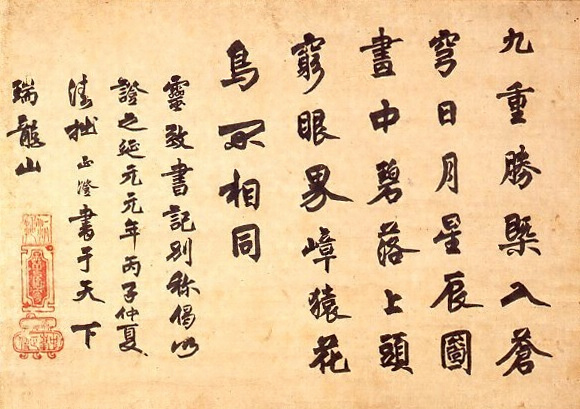 九重勝槩入蒼
穹日月星辰圖
畫中碧落上頭
窮眼界嶂猿花
鳥不相同
靈致書記別称偈以
證之延元元年丙子仲夏
清拙正澄書于天下
瑞龍山